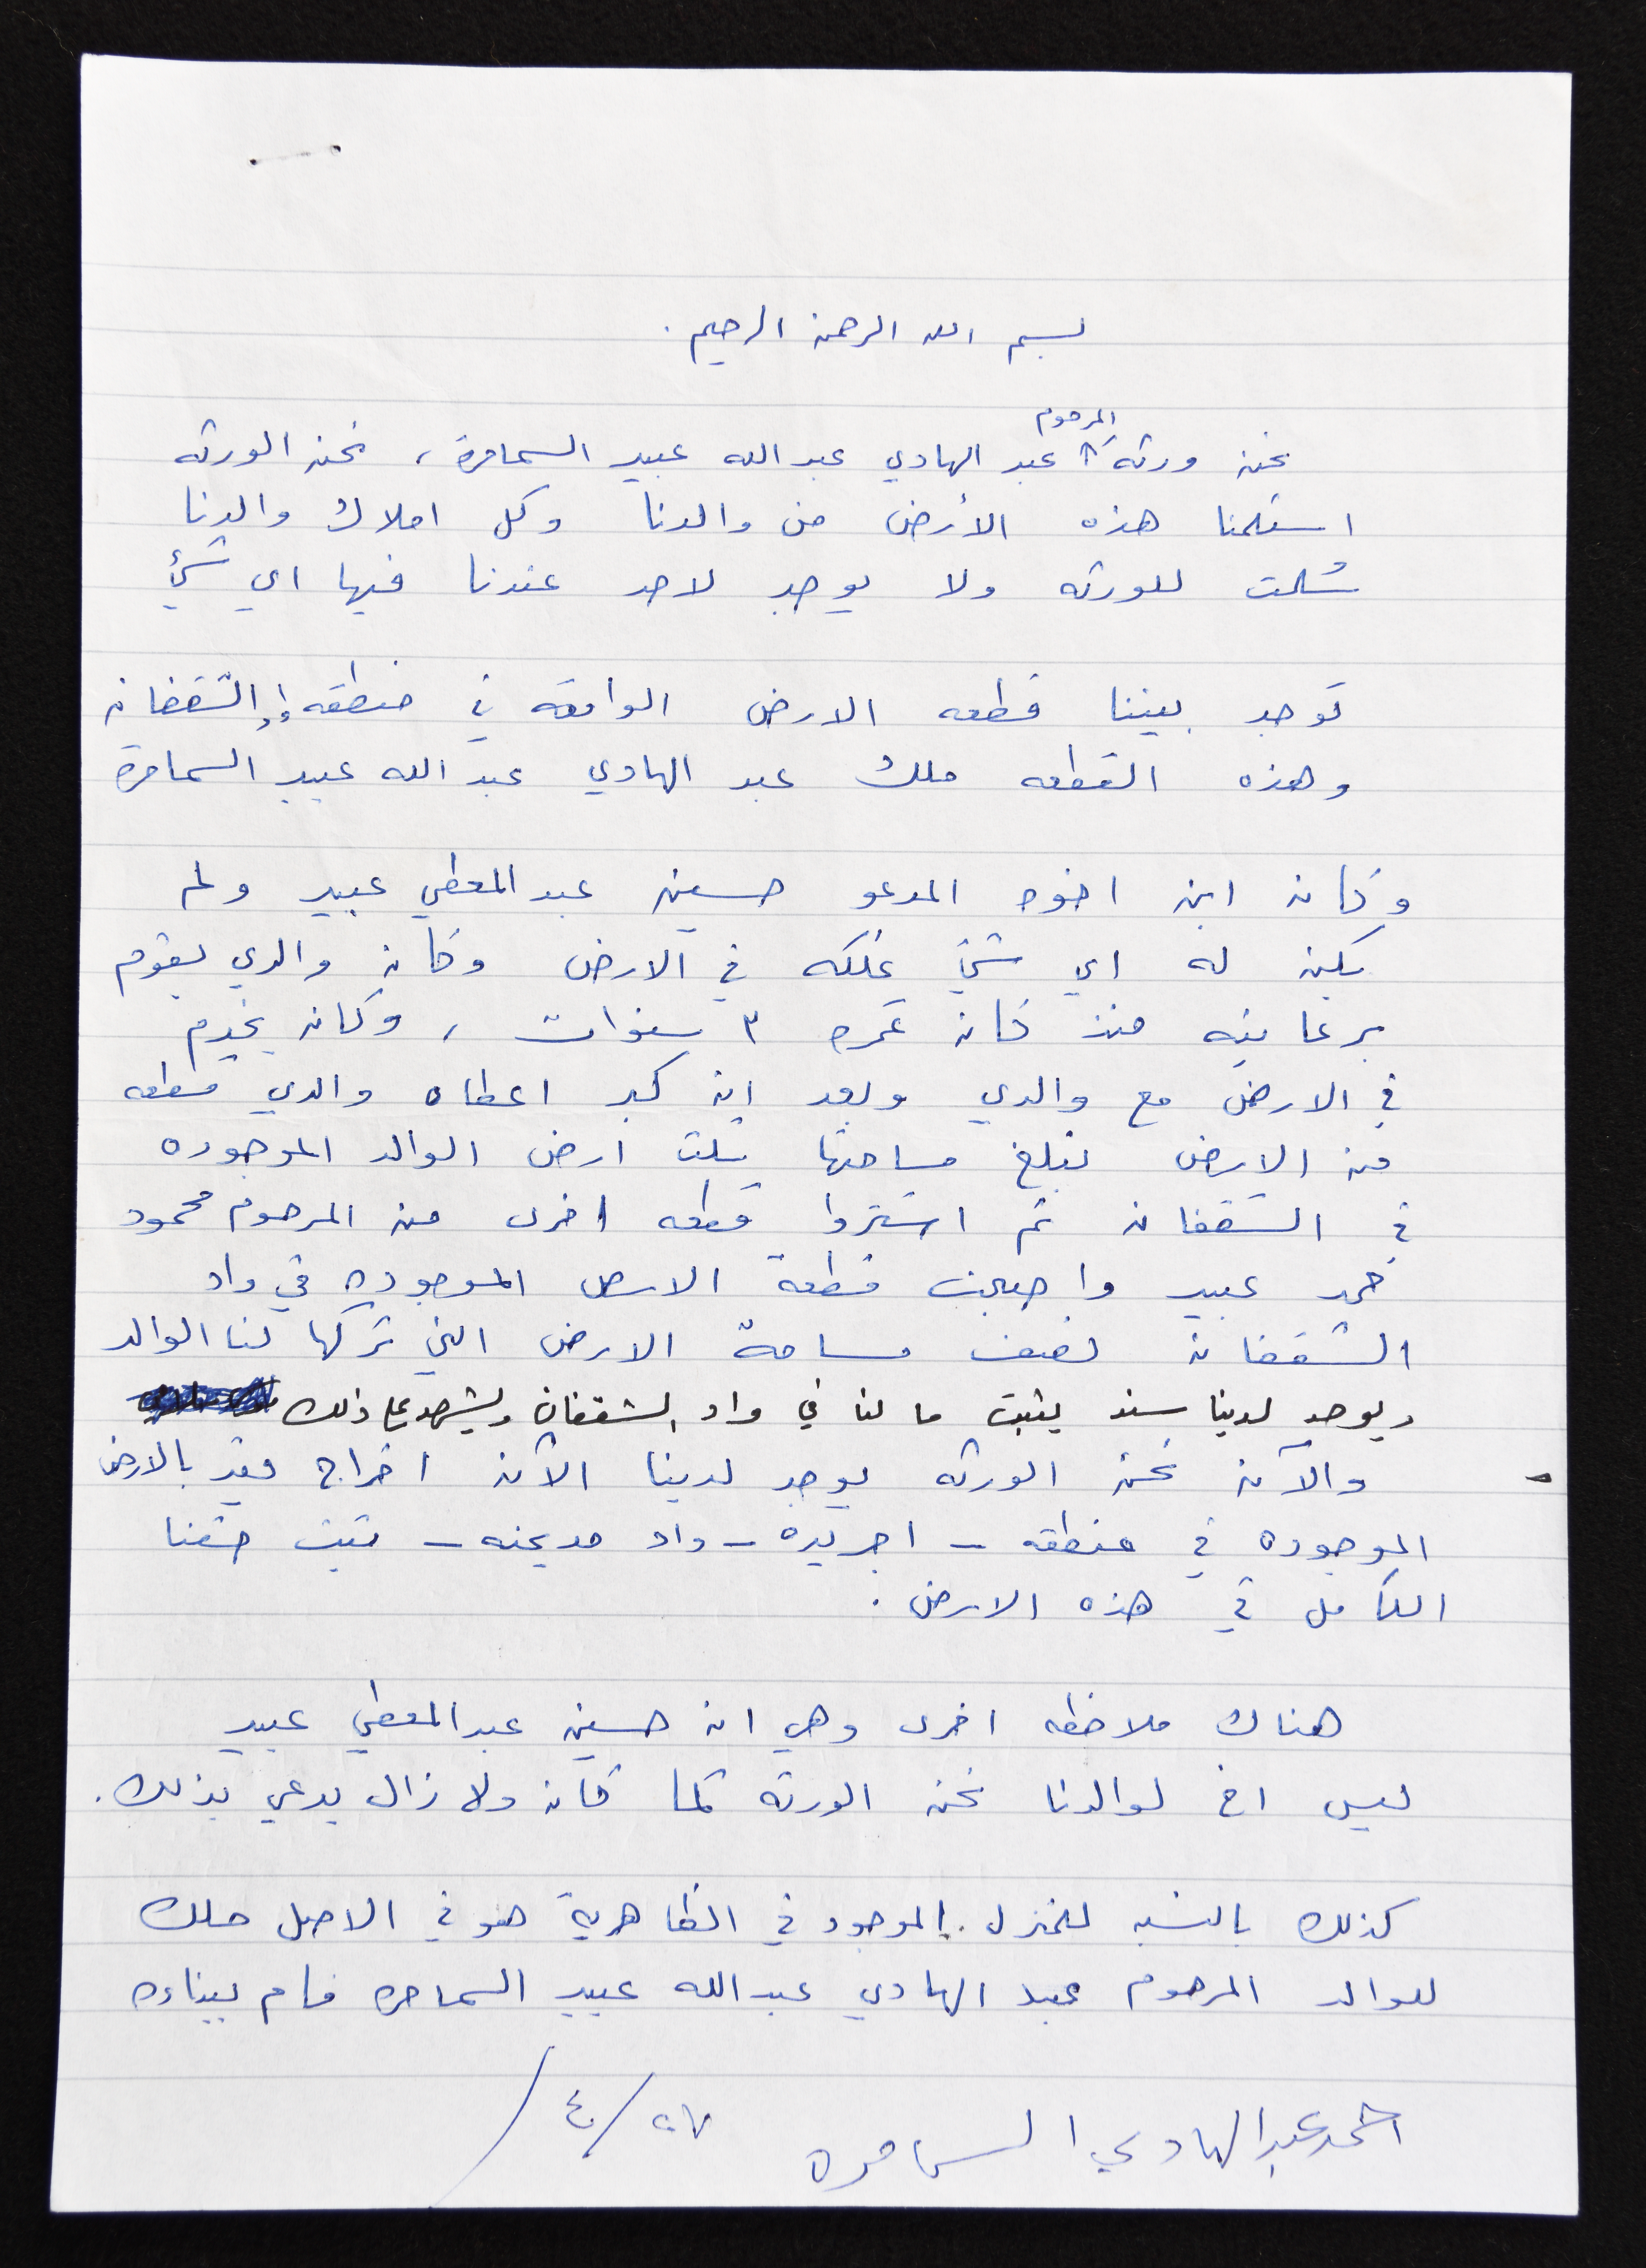 بسم الله الرحمن الرحيم .
المرحوم
نحن ورثة عبد الهادي عبد الله عبيد السمامرة ، نحن الورثه
استلمنا هذه الأرض من والدنا وكل املاك والدنا
سُلمت للورثه ولا يوجد لاحد عندنا فيها اي شيُ
توجد بيننا قطعه الارض الواقعه في منطقه الشقفان
وهذه القطعه ملك عبد الهادي عبد الله عبيد السمامرة
وكان ابن اخوه المدعو حسين عبد المعطي عبيد ولم
يكن له اي شئ يملكه في الارض وكان والدي يقوم
برعايته منذ كان عمره ٣ سنوات ، وكان يخدم
في الارض مع والدي وبعد ان كبر اعطاه والدي قطعه
من الارض تبلغ مساحتها ثلث ارض الوالد الموجوده
في الشقفان ثم اشتروا قطعه اخرى من المرحوم محمود
حمد عبيد واصبحت قطعة الارض الموجوده في واد
الشقفان نصف مساحة الارض التي تركها لنا الوالد
ويوجد لدينا سند يثبت ما لنا في واد الشقفان ويشهد على ذلك
- والآن نحن الورثه يوجد لدينا الآن اخراج قيد بالارض
الموجوده في منطقه - اجريده - واد مديحنه - تثبت حقنا
الكامل في هذه الارض .
هناك ملاحظه اخرى وهي ان حسين عبد المعطي عبيد
ليس اخ لوالدنا نحن الورثه كما كان ولا زال يدعي بذلك .
كذلك بالنسبه للمنزل الموجود في الظاهرية هو في الاصل ملك
للوالد المرحوم عبد الهادي عبد الله عبيد السمامره قام ببناءه
احمد عبد الهادي السمامره ٢٧/٤/